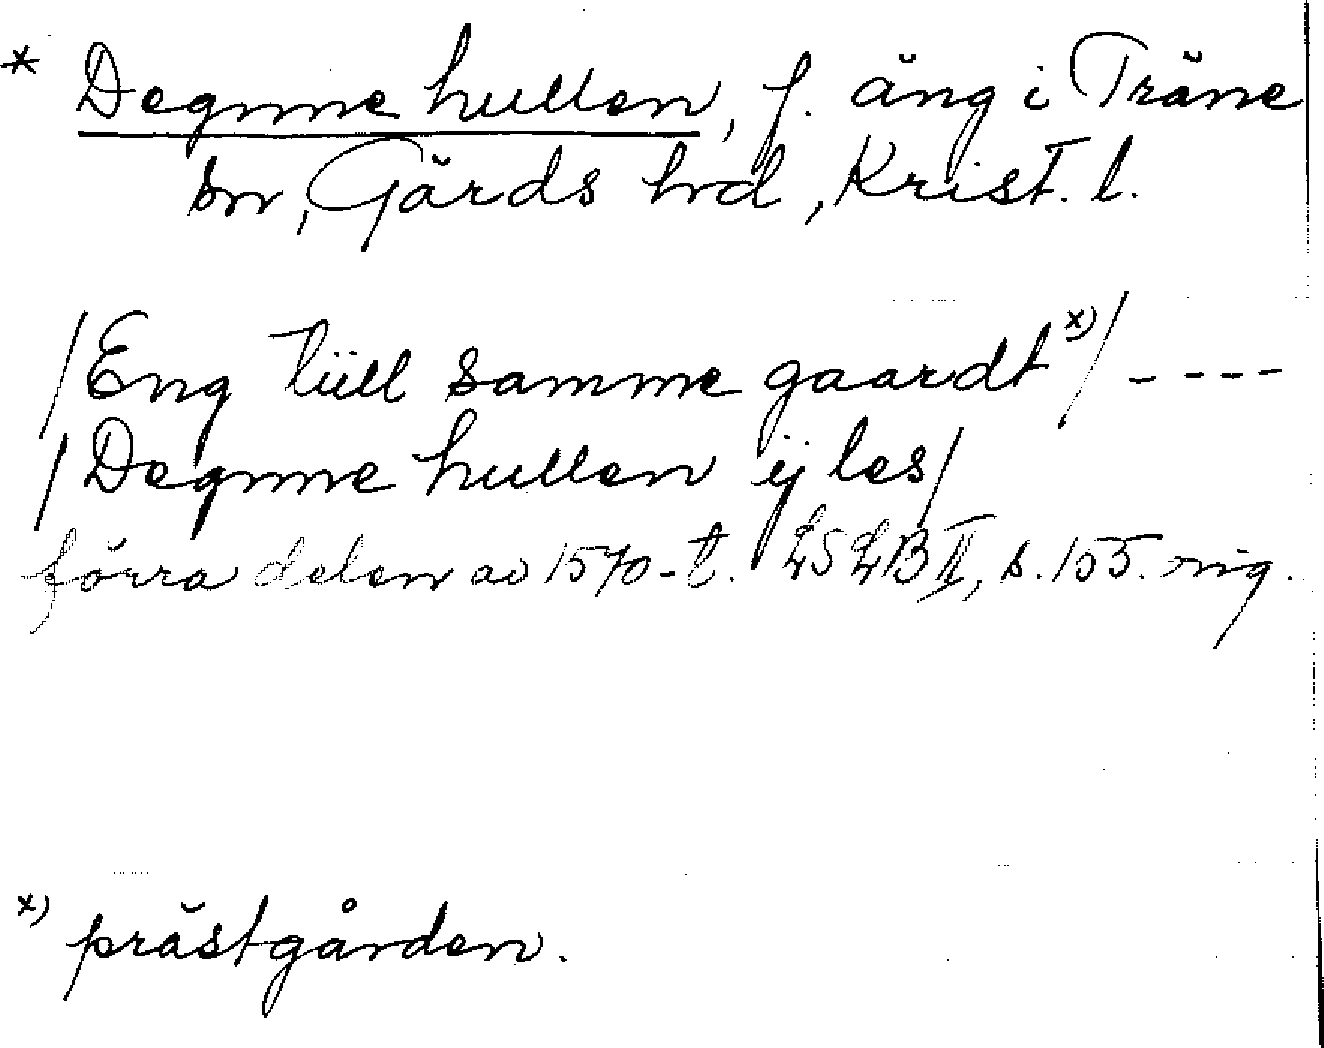 * Degnne hullen, f. äng i Träne
sn, Gärds hrd, Krist. l.
/Eng tiill samme gaardt x)/ ----
/Degnne hullen ij les/
förra delen av 1570-t. LSLB II, s. 155. rig.
x) prästgården.